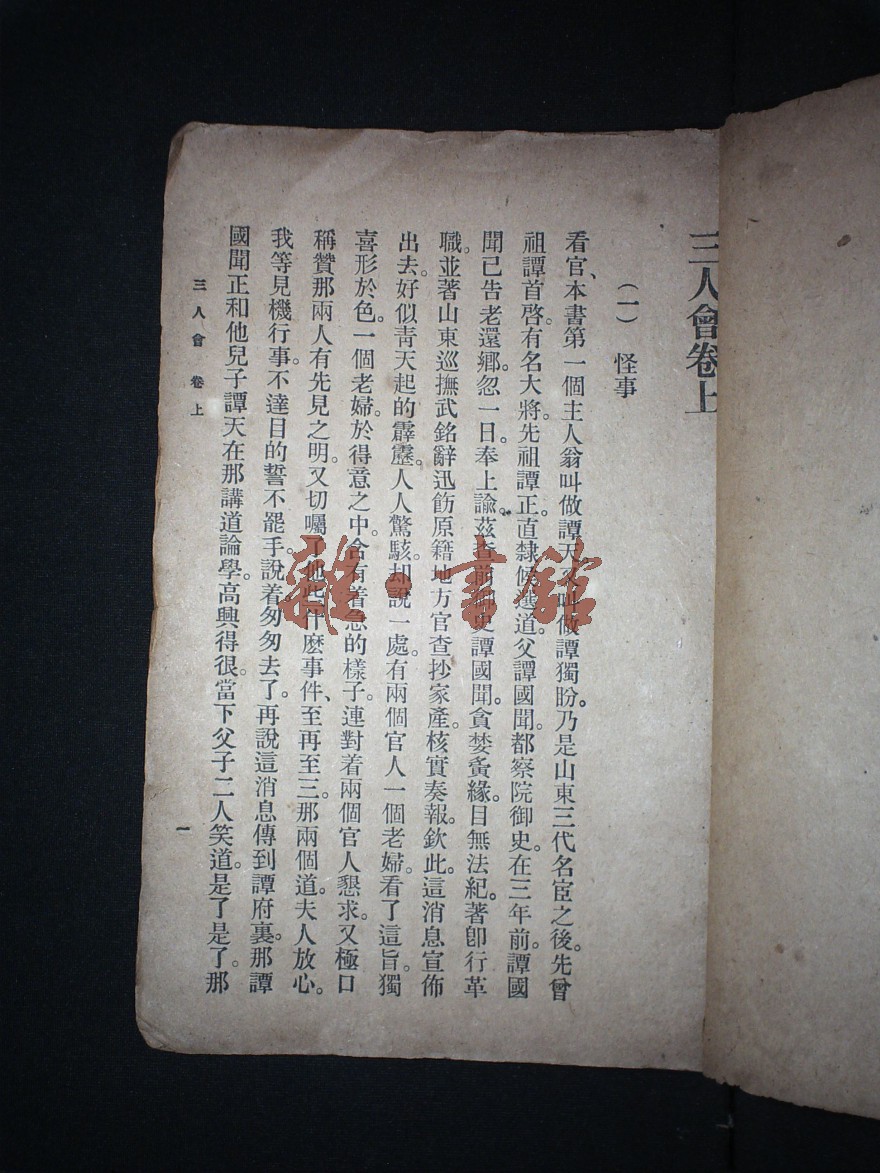 三人會卷上
（一）　怪事
看官、本書第一個主人翁叫做譚天又叫做譚獨盼。乃是山東三代名宦之後。先曾
祖譚首啓。有名大將。先祖譚正。直隸候選道。父譚國聞。都察院御史。在三年前。譚國
聞已告老還鄉。忽一日。奉上諭。茲查前御史譚國聞。貪婪夤緣。目無法紀。著卽行革
職。並著山東巡撫武銘辭迅飭原籍地方官查抄家產。核實奏報。欽此。這消息宣佈
出去。好似靑天起的霹靂。人人驚駭。却說一處。有兩個官人一個老婦。看了這旨。獨
喜形於色。一個老婦。於得意之中。含有着急的樣子。連對着兩個官人懇求。又極口
稱贊那兩人有先見之明。又切囑了他些什麽事件、至再至三。那兩個道。夫人放心。
我等見機行事。不達目的誓不罷手。說着匆匆去了。再說這消息傳到譚府裏。那譚
國聞正和他兒子譚天在那講道論學。高興得很。當下父子二人笑道。是了是了。那
三人會　卷上
一
雜·書館